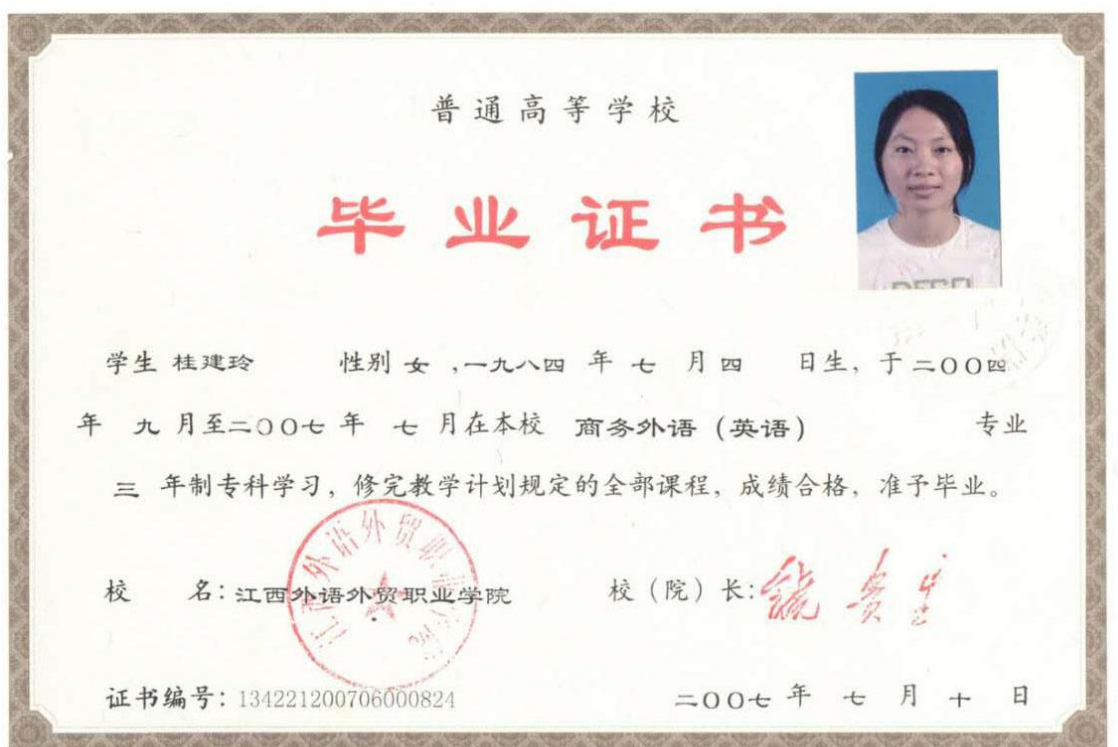 普通高等学校
毕业证书
学生 桂建玲 性别 女 ,一九八四 年 七 月 四 日生，于 二00四
年 九 月至二00七 年 七 月在本校 商务外语（英语） 专业
三 年制专科学习，修完教学计划规定的全部课程，成绩合格，准予毕业。
江西外语外贸职业学院
校 名：江西外语外贸职业学院 校（院）长：
证书编号：134221200706000824 二00七 年 七 月 十 日